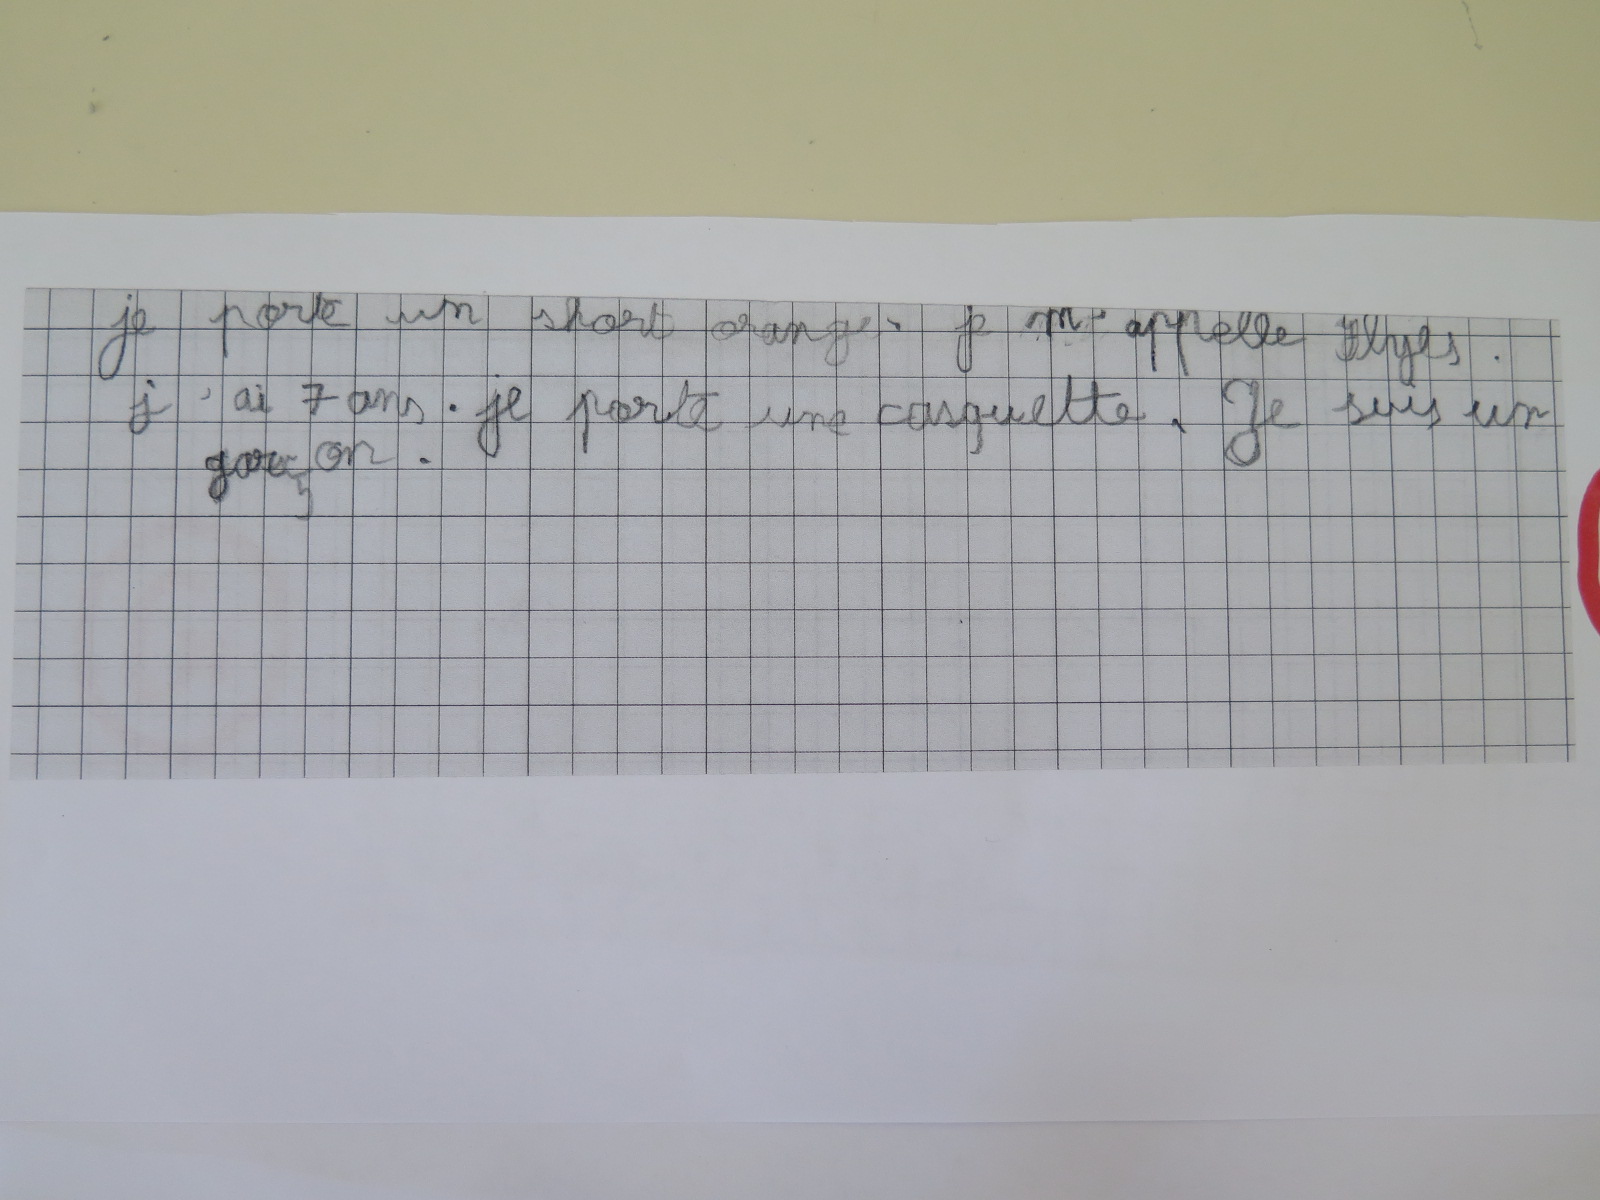 je porte un short orange. je m'appelle Ilyes.
j'ai 7 ans. je porte une casquette. Je suis un
garçon.